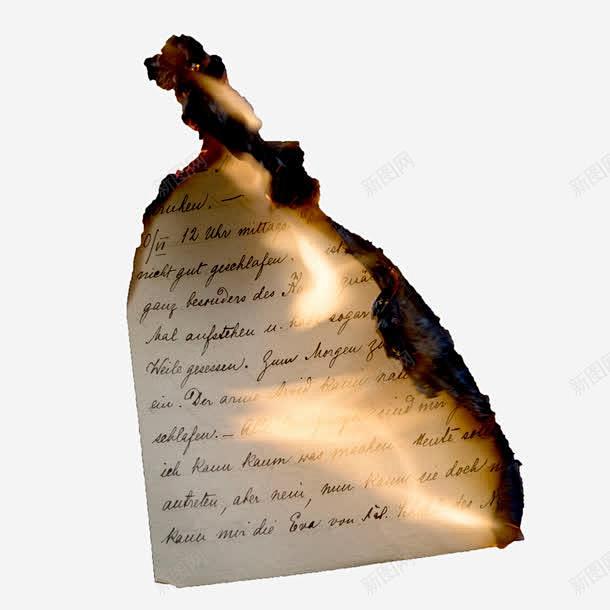 ruhen. —
0/VI 12 Uhr mittags
nicht gut geschlafen. ist
ganz besonders des
Mal aufstehen u. sogar
Weile gesessen. Zum Morgen zu
ein. Der arme kann
schlafen. — sind mir
ich kann kaum was machen. Heute
antreten, aber nein, nun kann sie doch
kann mir die Eva von des
新图网